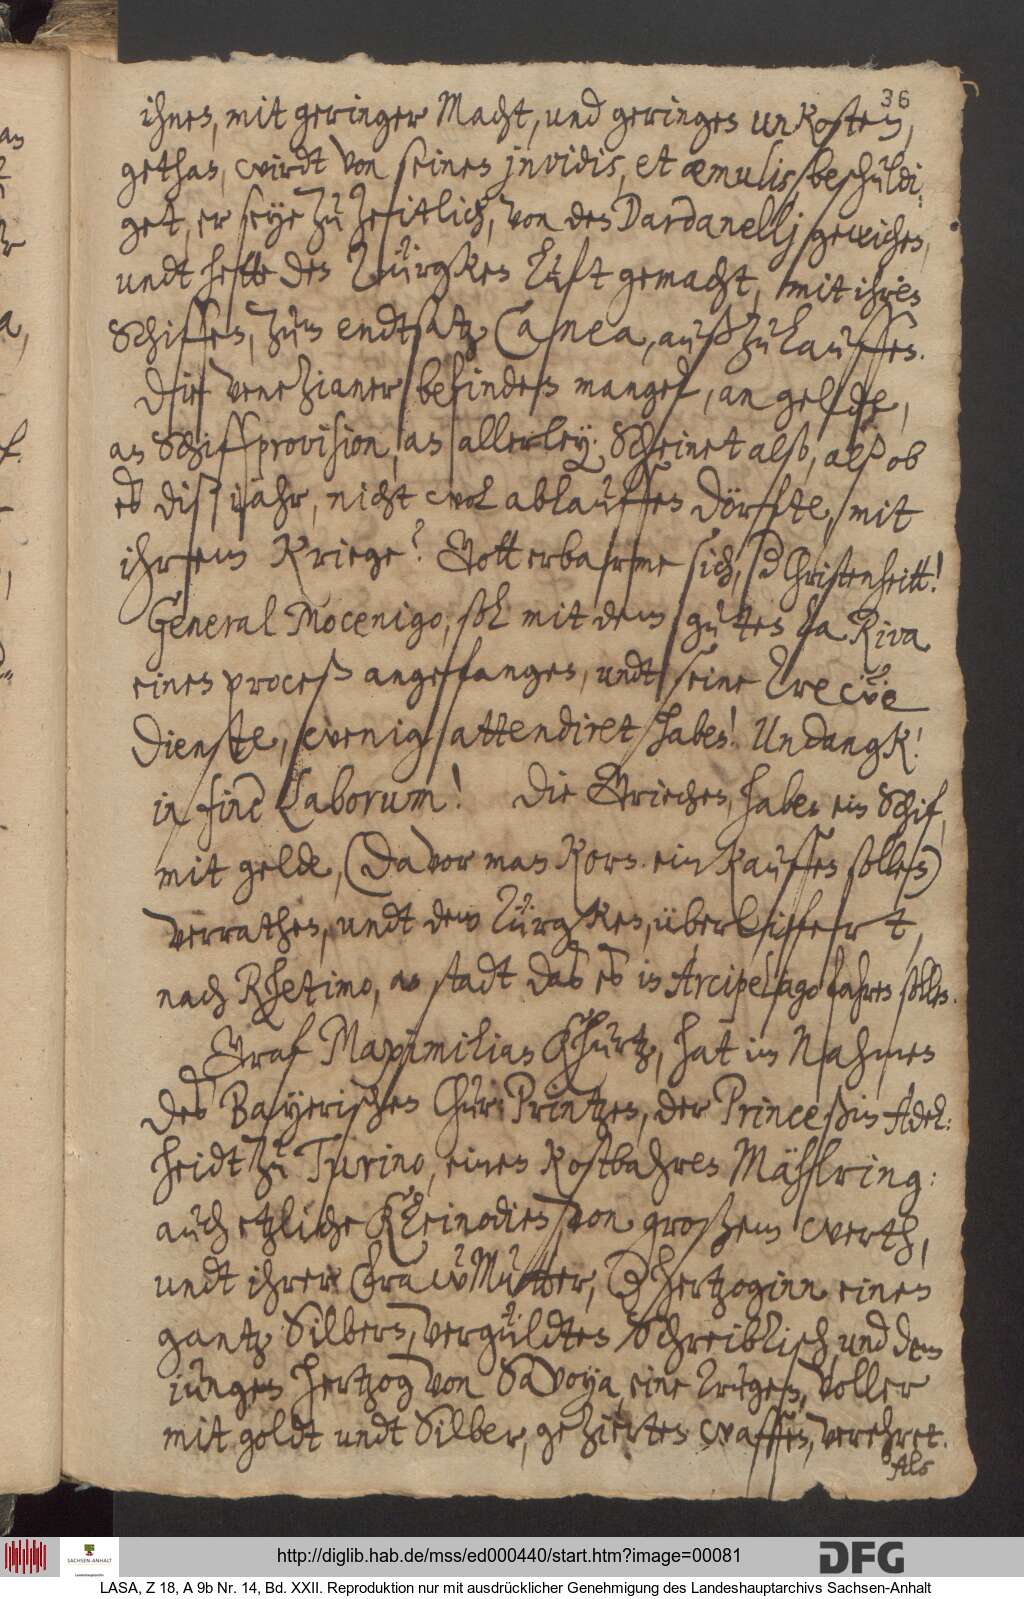 36
ihnen, mit geringer Macht, und geringen unkosten,
gethan, wirdt von seinen jnvidis, et æmulis, beschuldi-
get, er seye zu zeitlich, von den Dardanellj gewichen,
undt hette den Türgken luft gemacht, mit ihren
Schiffen, zum endtsatz Canea, außzulauffen.
Die Venezianer befinden mangel, an gelde,
an Schifprovision, an allerley. Scheinet alß, alß ob
es diß jahr, nicht wol ablauffen dörffte, mit
ihrem Kriege? Gott erbarme sich, d Christenheitt!
General Mocenigo, sol mit dem guten la Riva
einen proceß angefangen, undt seine trewe
dienste, wenig attendiret haben! Undangk!
in fine Laborum! Die Griechen, haben ein Schif,
mit gelde, (davor man Korn einkauffen sollen)
verrathen, undt dem Türgken, überliffert,
nach Rhetimo, an stadt das es in Arcipelago fahren sollen.
Graf Maximilian Khurtz, hat im Nahmen
des Bayerischen Chur Printzen, der Princeßin Adel:
heidt zu Turino, einen Kostbahren Mähelring:
auch etzliche Kleinodien von großem werth,
undt ihrer Fraw Mutter, d Hertzoginn einen
gantz Silbern, vergüldten Schreibtisch, und dem
jungen Hertzog von Savoya, eine truhen, voller
mit goldt undt Silber, gezierten waffen, verehret.
Als
http://diglib.hab.de/mss/ed000440/start.htm?image=00081
DFG
SACHSEN-ANHALT
LASA, Z 18, A 9b Nr. 14, Bd. XXII. Reproduktion nur mit ausdrücklicher Genehmigung des Landeshauptarchivs Sachsen-Anhalt